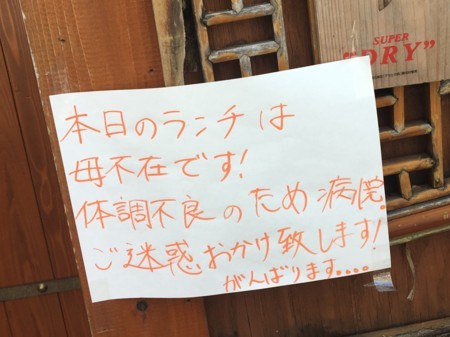 SUPER
"DRY"
本日のランチは
母不在です!
体調不良のため病院。
ご迷惑おかけ致します!
がんばります....